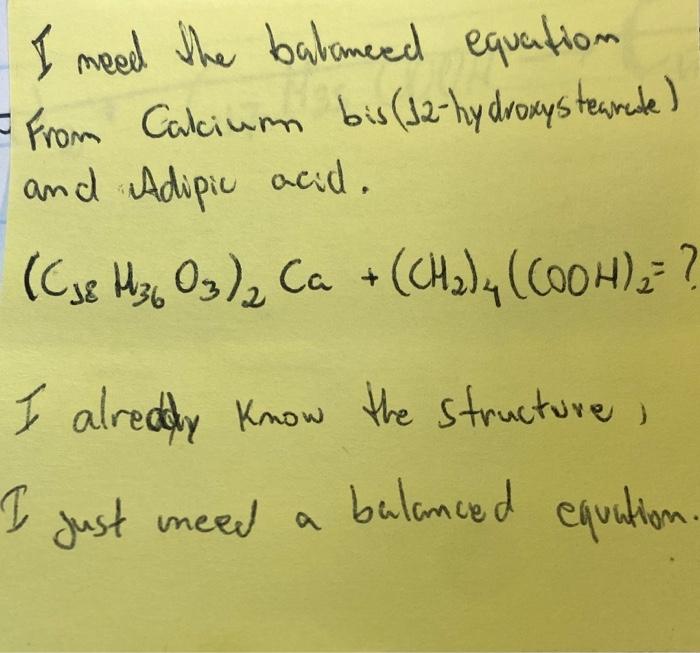 I need the balanced equation
From Calcium bis(12-hydroxystearate)
and Adipic acid.
(C₁₈ H₃₆ O₃)₂ Ca + (CH₂)₄ (COOH)₂ = ?
I already know the structure,
I just need a balanced equation.